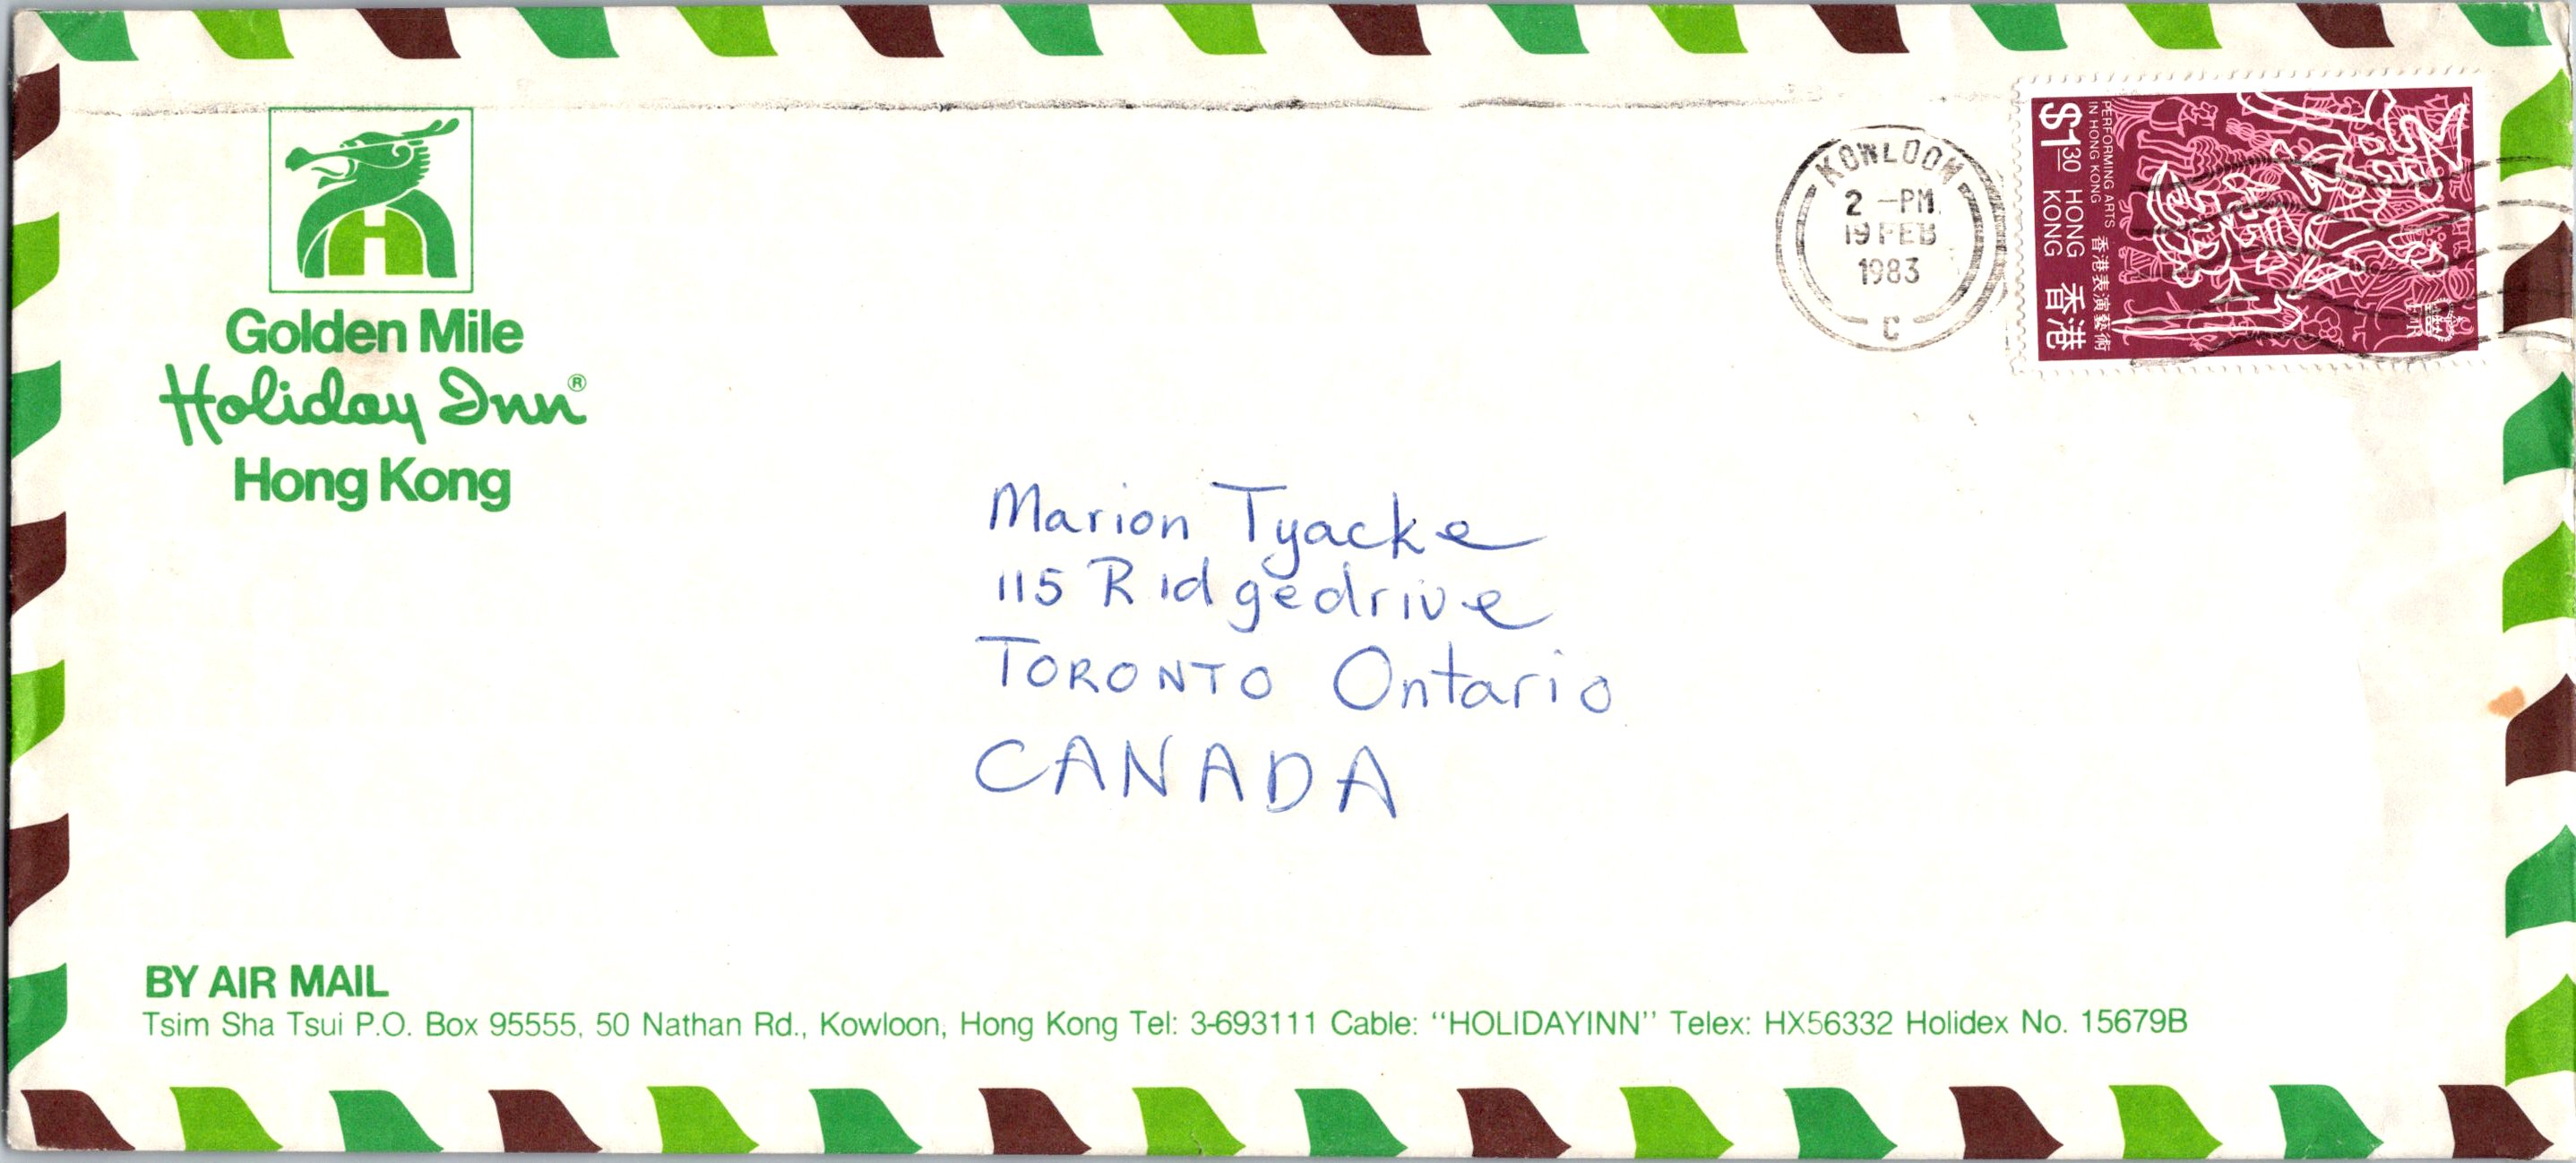 Golden Mile
Holiday Inn®
Hong Kong
KOWLOON
2 -PM
19 FEB
1983
C
PERFORMING ARTS
IN HONG KONG
香港表演藝術
$1.30 HONG KONG 香港
Marion Tyacke
115 Ridgedrive
TORONTO Ontario
CANADA
BY AIR MAIL
Tsim Sha Tsui P.O. Box 95555, 50 Nathan Rd., Kowloon, Hong Kong Tel: 3-693111 Cable: "HOLIDAYINN" Telex: HX56332 Holidex No. 15679B